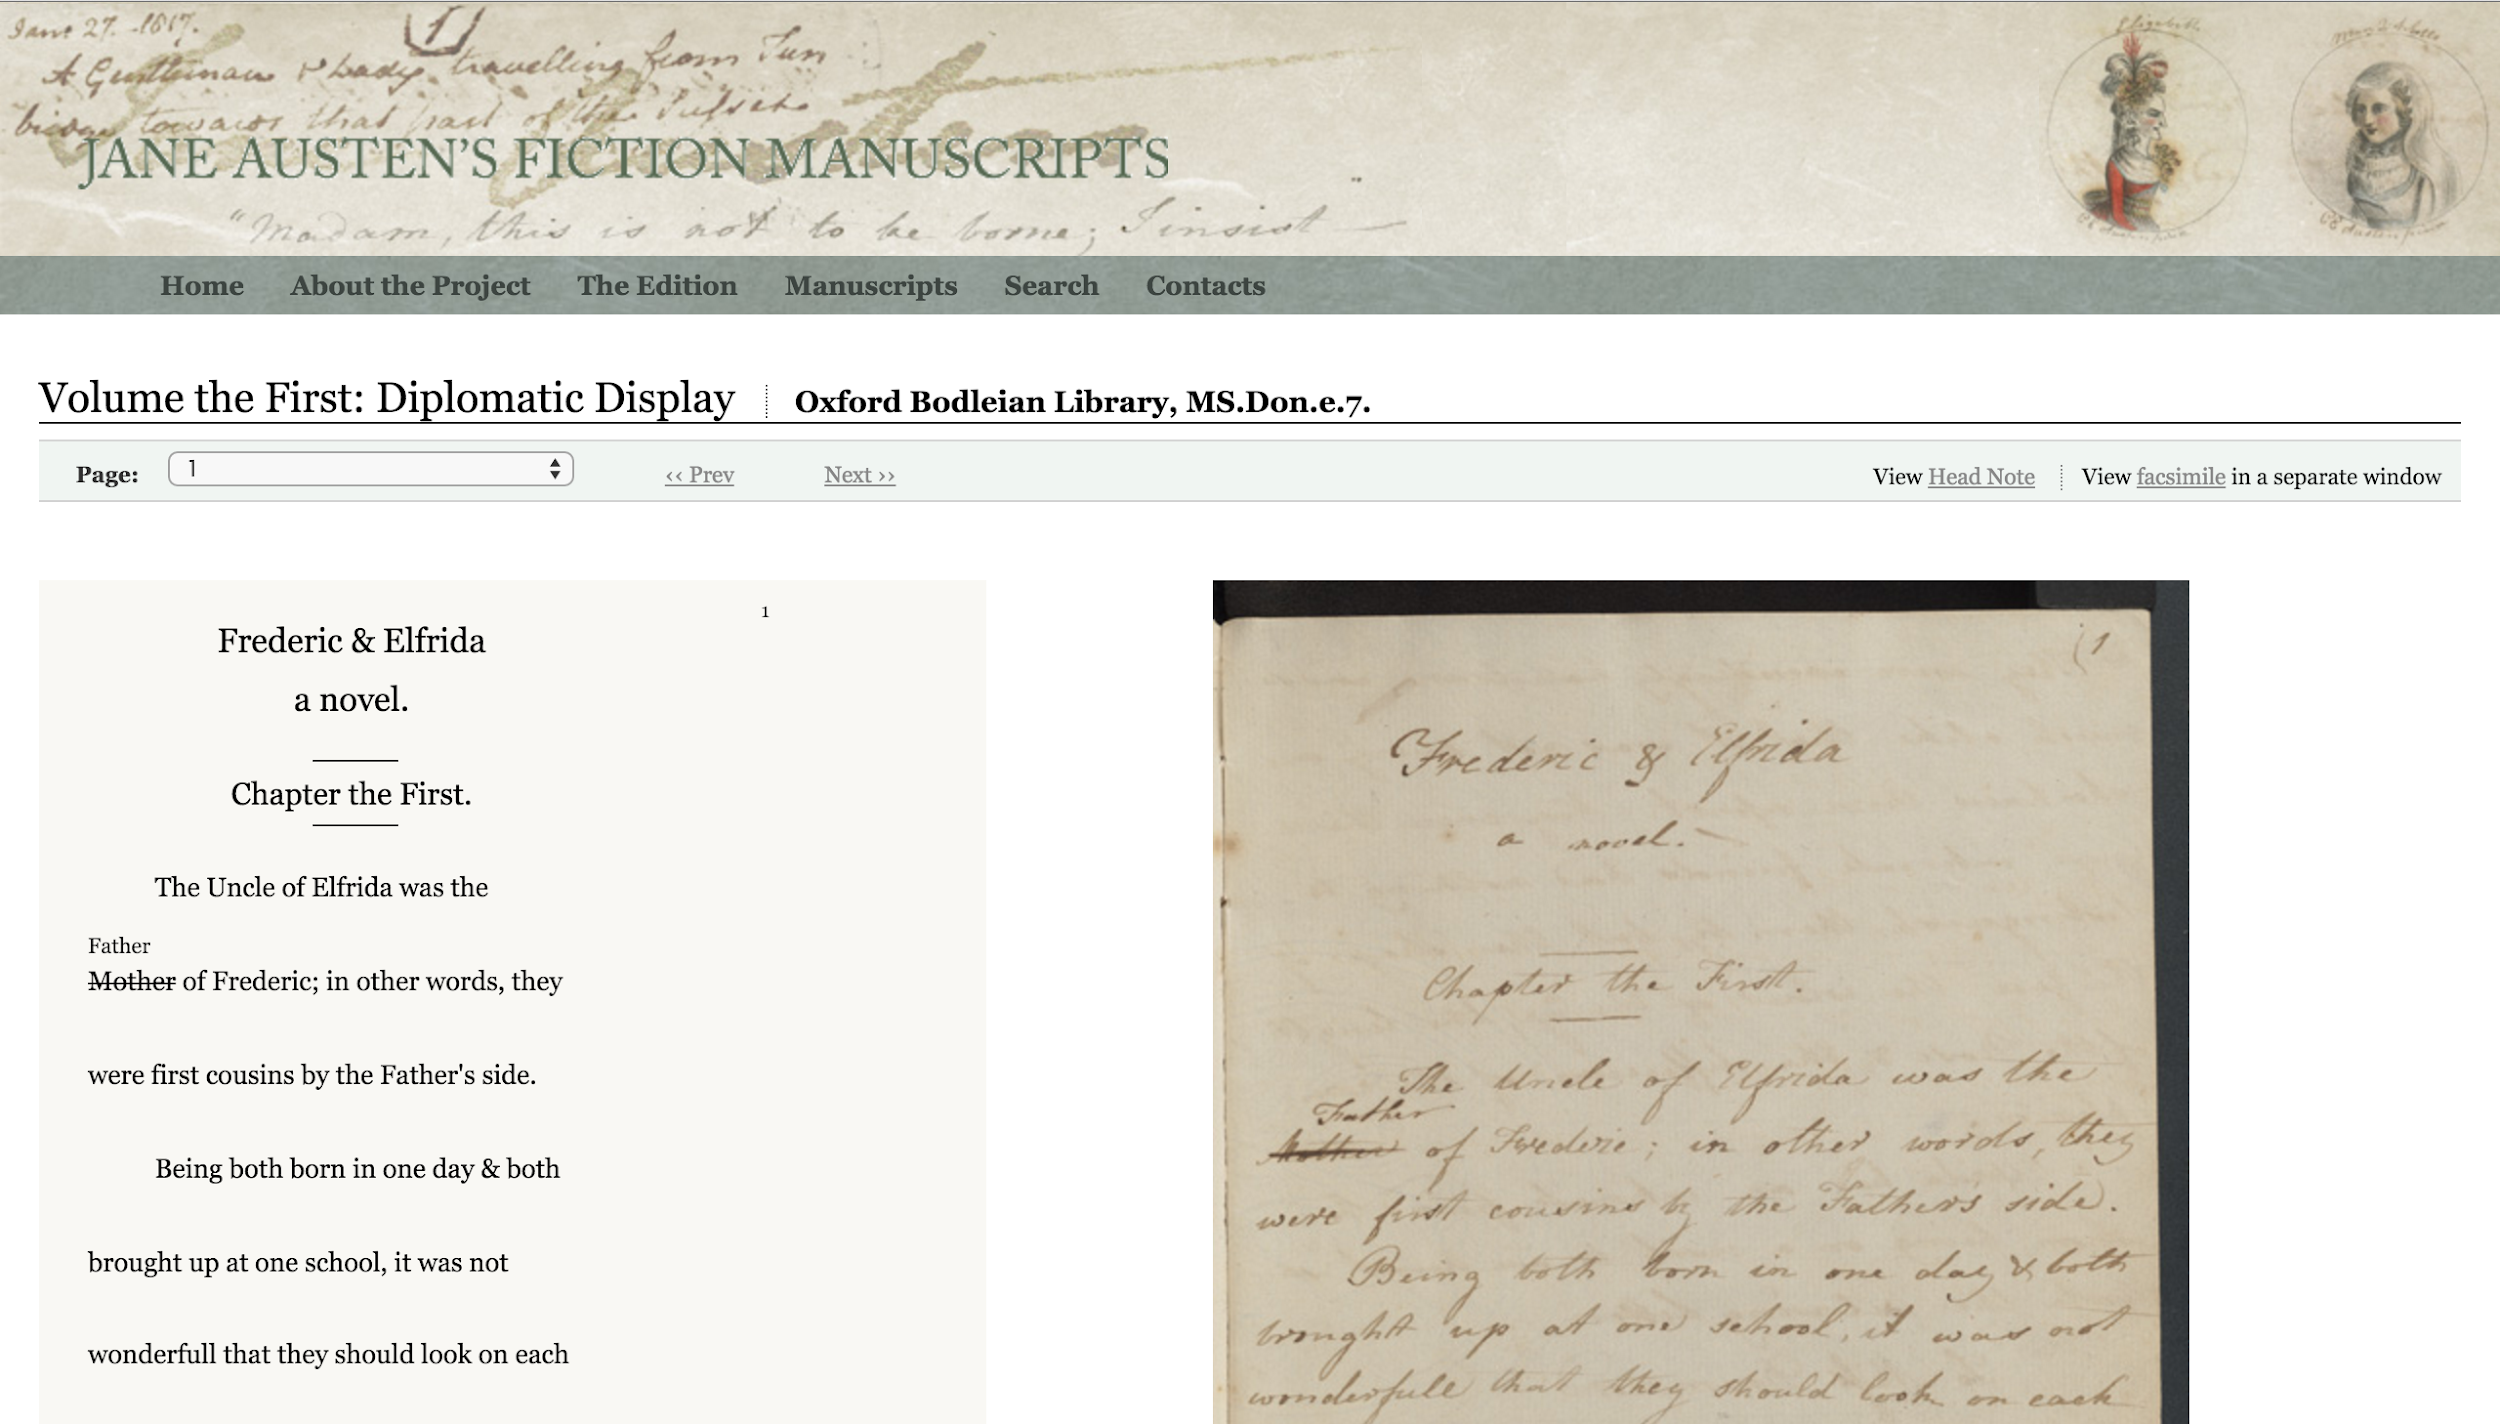 Jane 27. -1817.
1
A Gentleman & Lady travelling from Tun
bridge towards that part of the Sussex
JANE AUSTEN'S FICTION MANUSCRIPTS
"Madam, this is not to be borne; I insist
Elizabeth
Mary Q. of Scots
Home About the Project The Edition Manuscripts Search Contacts
Volume the First: Diplomatic Display Oxford Bodleian Library, MS.Don.e.7.
Page: 1 ‹‹ Prev Next ›› View Head Note View facsimile in a separate window
1
Frederic & Elfrida
a novel.
Chapter the First.
The Uncle of Elfrida was the
Father
Mother of Frederic; in other words, they
were first cousins by the Father's side.
Being both born in one day & both
brought up at one school, it was not
wonderfull that they should look on each
(1
Frederic & Elfrida
a novel.—
Chapter the First.
The Uncle of Elfrida was the
Father
Mother of Frederic; in other words, they
were first cousins by the Father's side.
Being both born in one day & both
brought up at one school, it was not
wonderfull that they should look on each